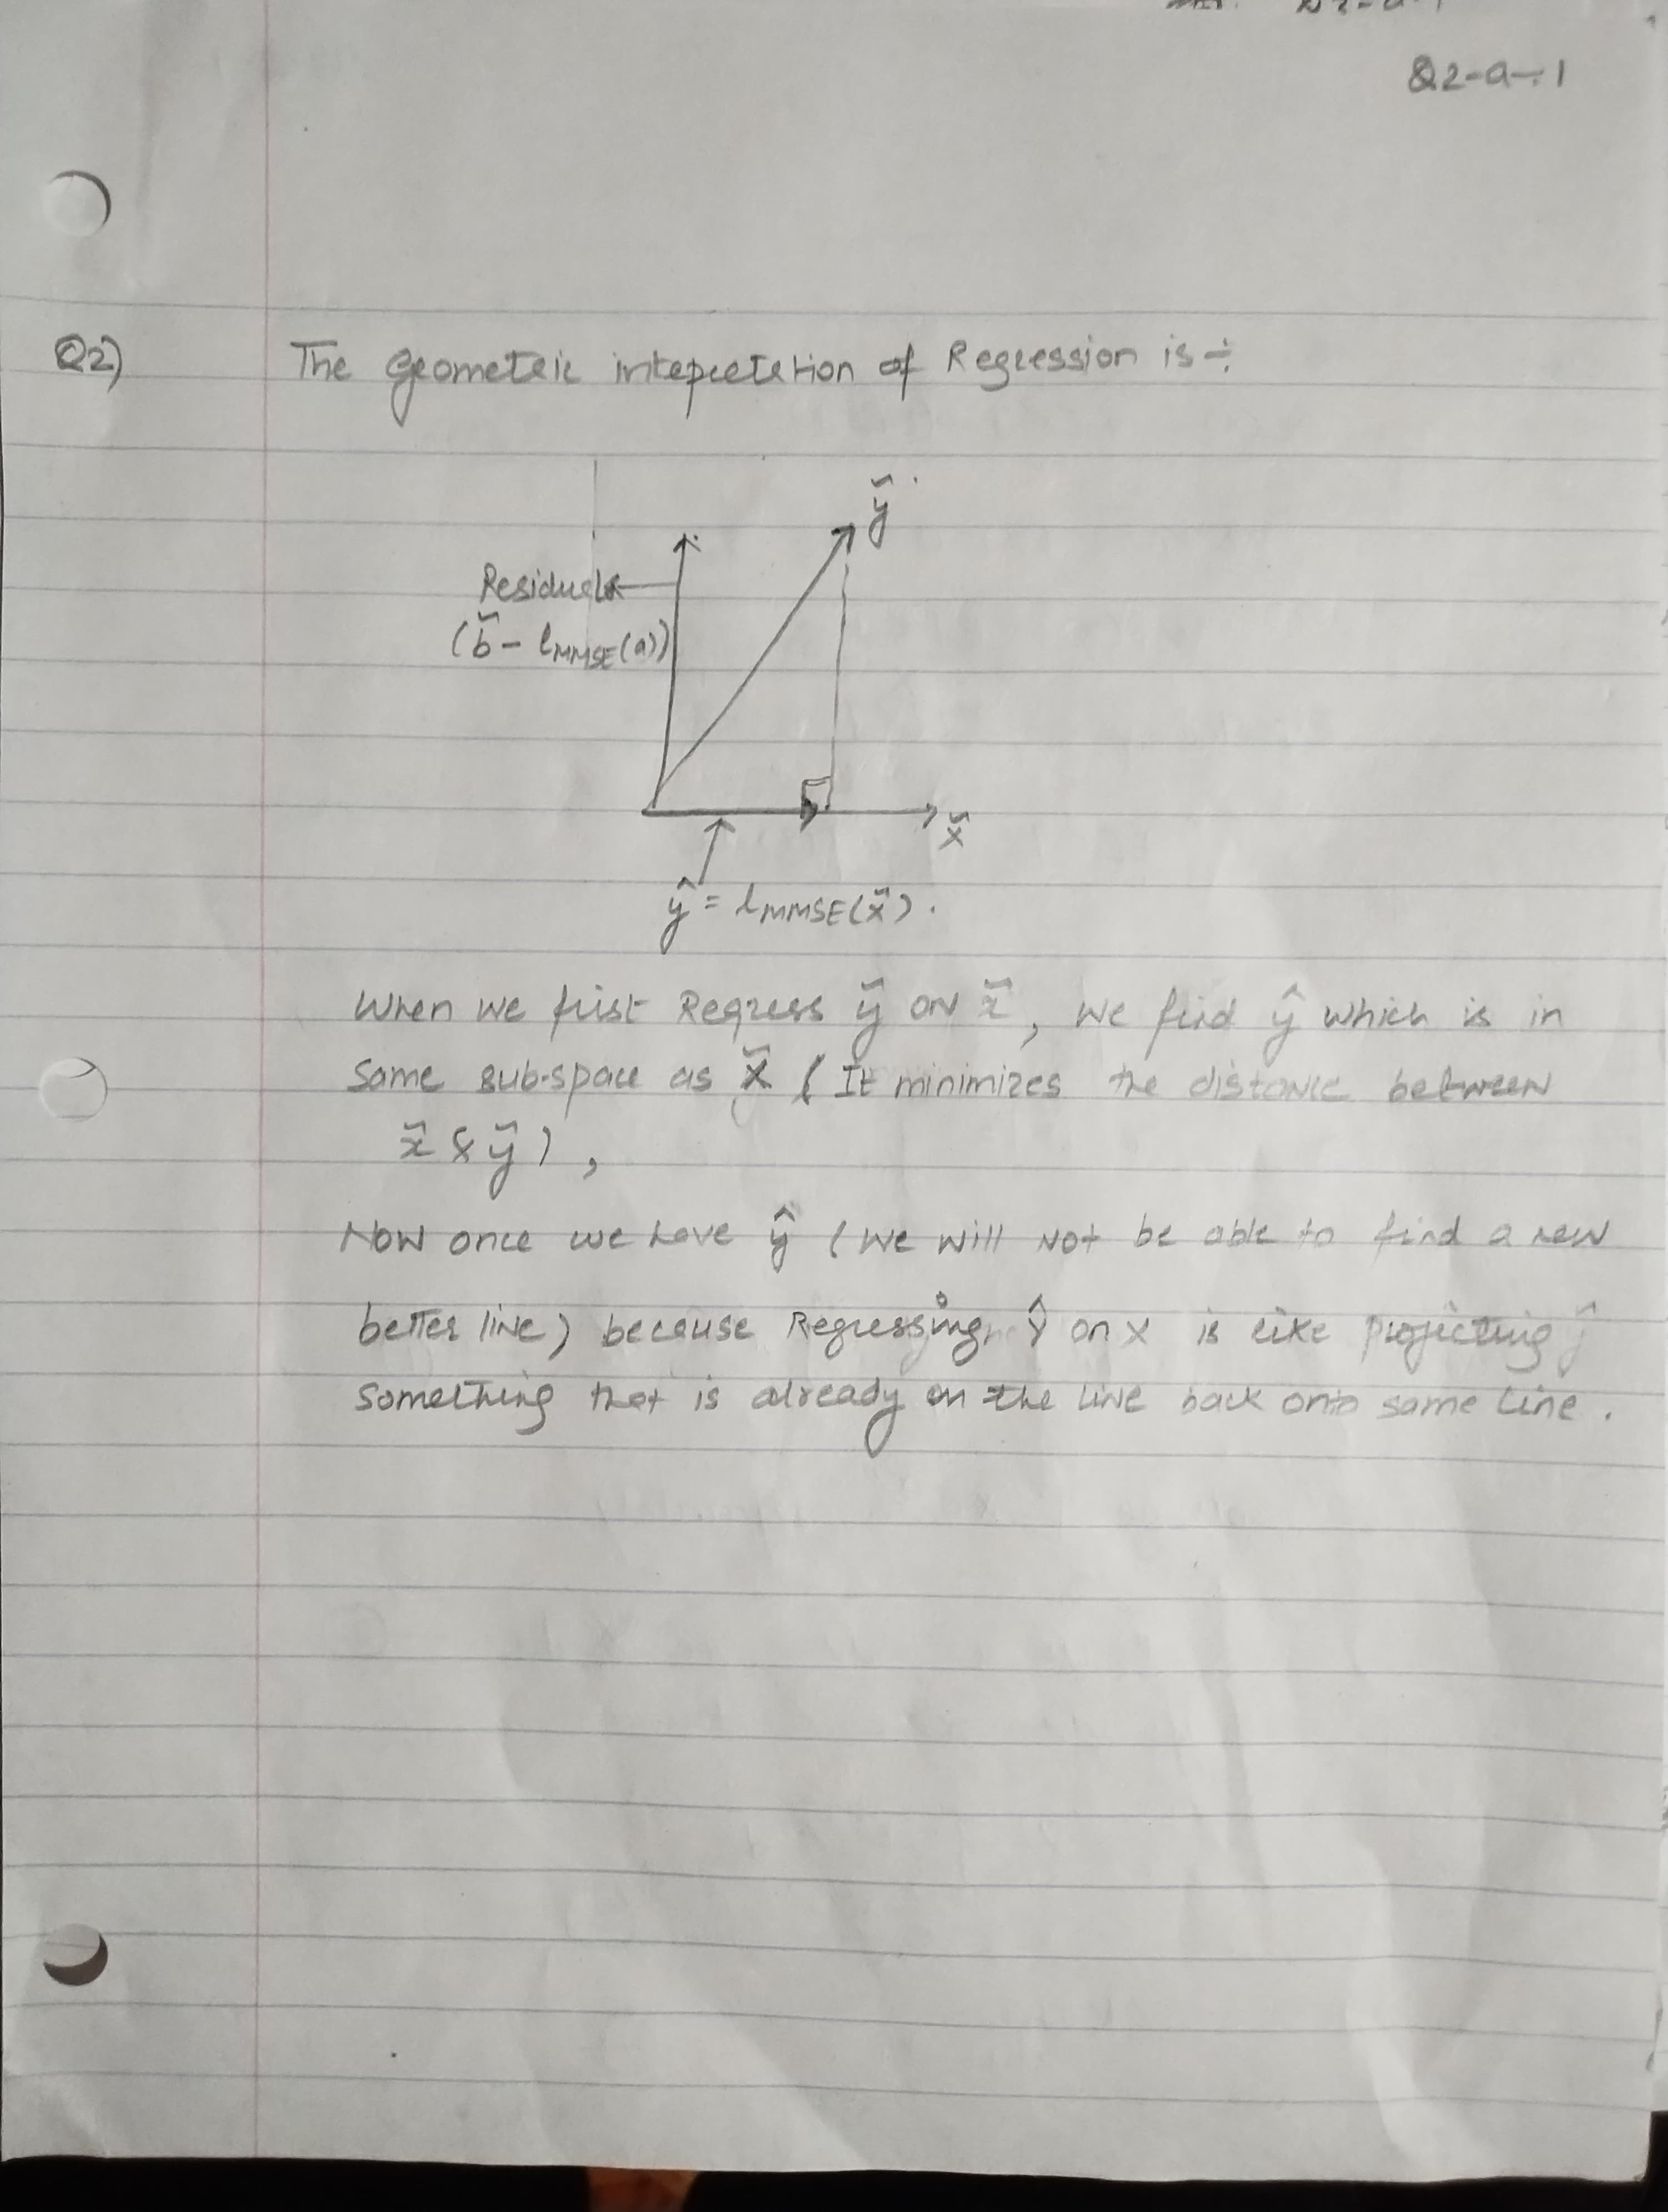 Q2-a-1
Q2) The Geometric intepretetion of Regression is ÷
ỹ
Residuals
(b̃ - lMMSE(a))
x̃
ŷ = lMMSE(x̃).
When we first Regress ỹ on x̃, we find ŷ which is in
same sub-space as x̃ (It minimizes the distance between
x̃ & ỹ),
Now once we have ŷ (we will not be able to find a new
better line) because Regressing ŷ on x is like projecting
something that is already on the line back onto same line.